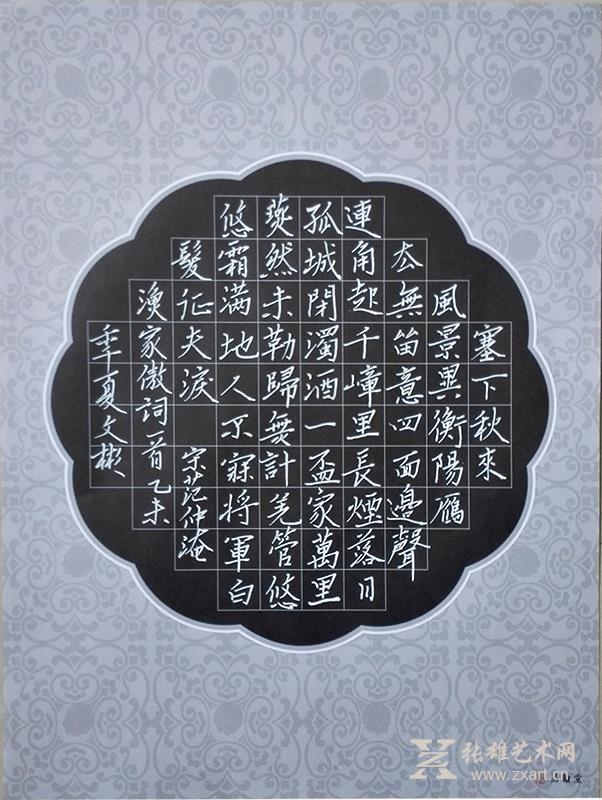 塞下秋來
風景異衡陽鴈
去無留意四面邊聲
連角起千嶂里長煙落日
孤城閉濁酒一盃家萬里
燕然未勒歸無計羌管悠
悠霜滿地人不寐將軍白
髮征夫淚 宋范仲淹
漁家傲詞一首乙未
季夏文彬
张雄艺术网
www.zxart.cn